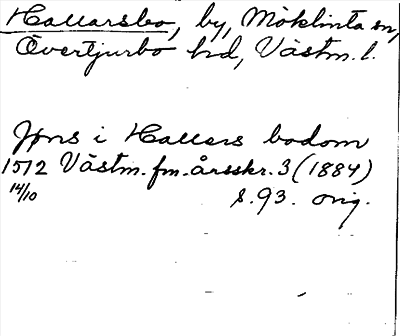 Hallarsbo, by, Möklinta sn,
Övertjurbo hd, Västm. l.
Jöns i Hallers bodom
1512 Västm. fm. årsskr. 3 (1884)
14/10 s. 93. orig.